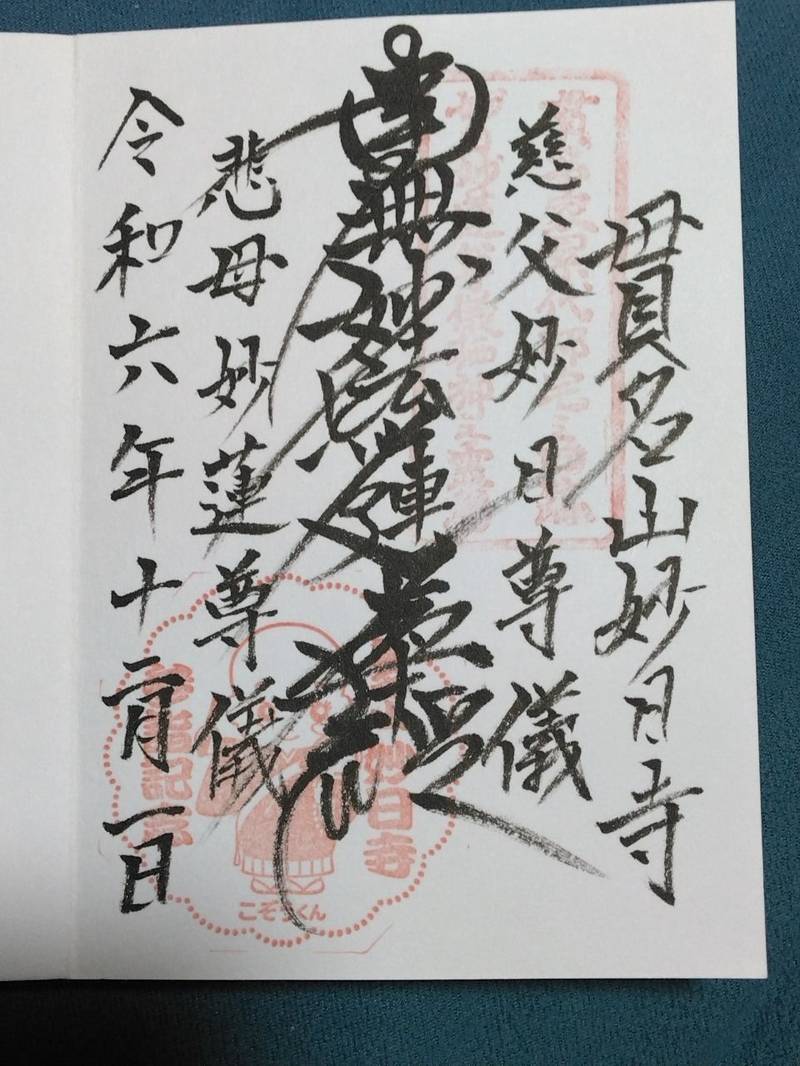 貫名山妙日寺
慈父妙日尊儀
南無妙法蓮華経
悲母妙蓮尊儀
令和六年十二月一日
妙日寺
参詣記念
こぞうくん